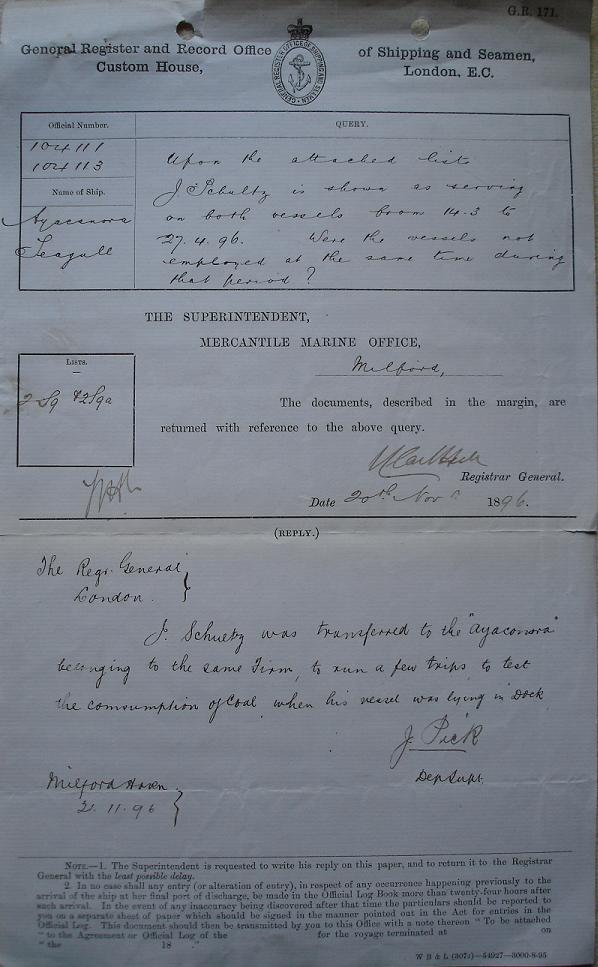 G.R. 171.
General Register and Record Office of Shipping and Seamen,
Custom House, London, E.C.
GENERAL REGISTER OFFICE OF SHIPPING AND SEAMEN
Official Number.
104111
104113
Name of Ship.
Ayacanora
Seagull
QUERY.
Upon the attached lists
J. Schultz is shown as serving
on both vessels from 14.3 to
27.4.96. Were the vessels not
employed at the same time during
that period?
THE SUPERINTENDENT,
MERCANTILE MARINE OFFICE,
Milford,
Lists.
The documents, described in the margin, are
returned with reference to the above query.
Registrar General.
Date 20th Nov 1896.
(REPLY.)
The Regr. General
London.
J. Schultz was transferred to the "Ayaconora"
belonging to the same Firm, to run a few trips to test
the comsumption of Coal when his vessel was lying in Dock
J. Pick
Dep Supt.
Milford Haven
21.11.96
NOTE.—1. The Superintendent is requested to write his reply on this paper, and to return it to the Registrar
General with the least possible delay.
2. In no case shall any entry (or alteration of entry), in respect of any occurrence happening previously to the
arrival of the ship at her final port of discharge, be made in the Official Log Book more than twenty-four hours after
such arrival. In the event of any inaccuracy being discovered after that time the particulars should be reported to
you on a separate sheet of paper which should be signed in the manner pointed out in the Act for entries in the
Official Log. This document should then be transmitted by you to this Office with a note thereon "To be attached
"to the Agreement or Official Log of the for the voyage terminated at on
"the 18 ."
W B & L (307z)—54927—3000-8-95